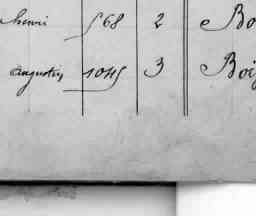 henri 568 2 Bo
augustin 1045 3 Boi